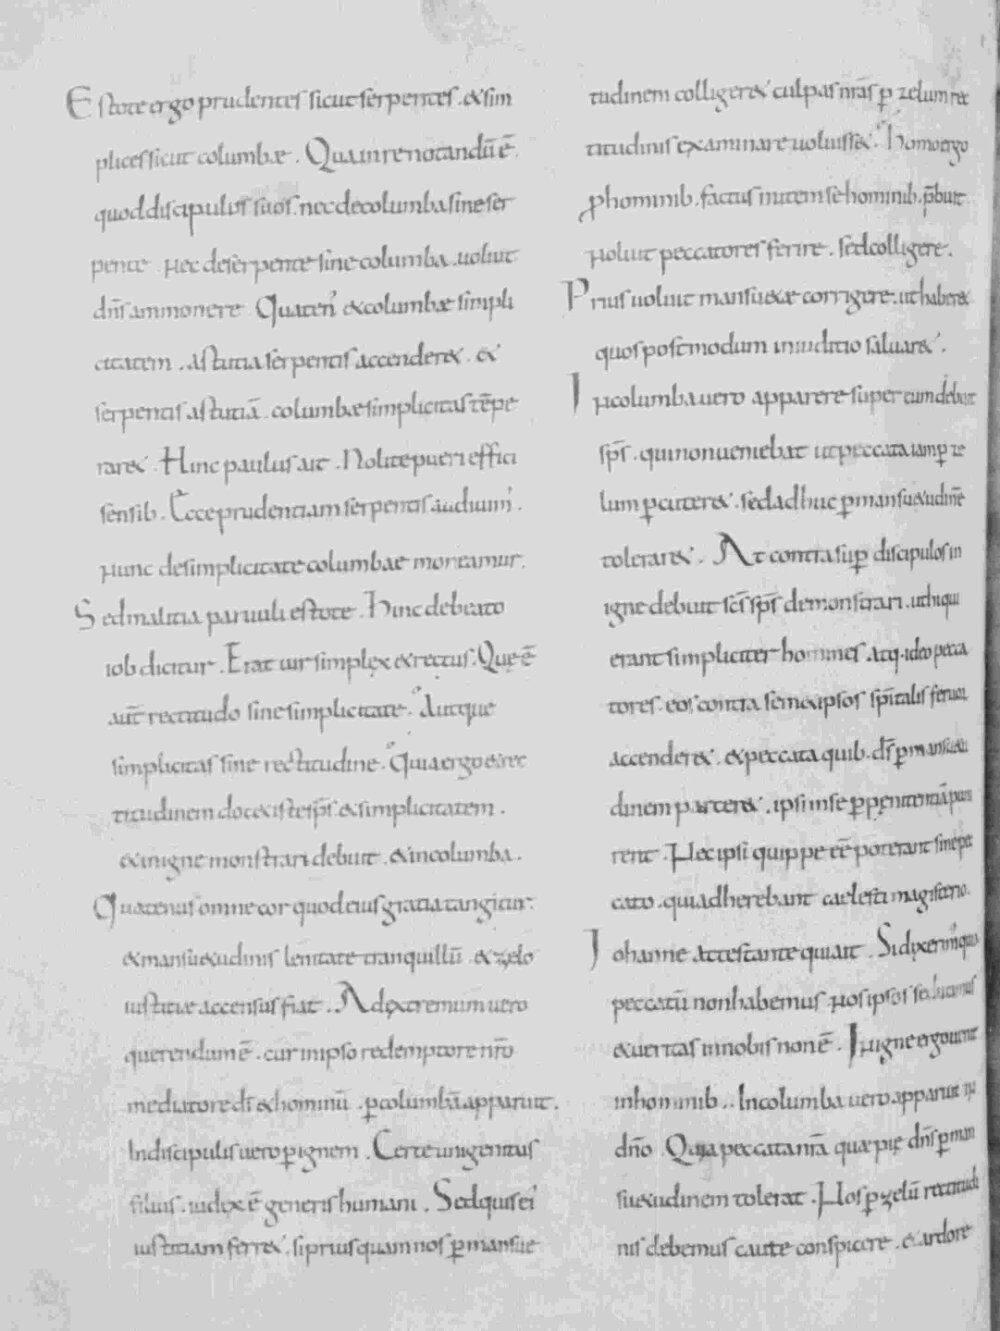 Estote ergo prudentes sicut serpentes . & sim
plices sicut columbæ . Qua in re notandū ē .
quod discipulos suos . nec de columba sine ser
pente . nec de serpente sine columba . uoluit
dn̄s ammonere Quaten' & columbæ simpli
citatem . astutia serpentis accender& . &
serpentis astutiā . columbæ simplicitas tēpe
rar& . Hinc paulus ait . Nolite pueri effici
sensib . Ecce prudentiam serpentis audiuim' .
nunc de simplicitate columbae moneamur .
Sed malitia paruuli estote . Hinc de beato
iob dicitur . Erat uir simplex & rectus . Quę ē
aut̄ rectitudo sine simplicitate . Aut que
simplicitas sine rectitudine . Quia ergo & rec
titudinem docet iste sp̄s . & simplicitatem .
& in igne monstrari debuit . & in columba .
Quatenus omne cor quod eius gratia tangitur .
& mansuetudinis lenitate tranquillū . & zelo
iustitiæ accensus fiat . Ad extremum uero
querendum ē . cur in ipso redemptore nr̄o
mediatore dī & hominū . p columbā apparuit .
In discipulis uero p ignem . Certe unigenitus
filius . iudex ē generis humani . Sed quis ei'
iustitiam ferr& . si prius quam nos p mansue
tudinem colliger& culpas nr̄as p zelum rec
titudinis examinare uoluiss& . Homo ergo
p hominib . factus mitem se hominib . p̄buit
noluit peccatores ferire . sed colligere .
Prius uoluit mansuetæ corrigere . ut haber&
quos postmodum in iuditio saluar& .
In columba uero apparere super eum debuit
sp̄s . qui non ueniebat ut peccata iam p ze
lum pcuter& . sed adhuc p mansuetudinē
tolerar& . At contra sup discipulos in
igne debuit sc̄s sp̄s demonstrari . ut hi qui
erant simpliciter homines . atq . ideo pecca
tores . eos contra sem&ipsos sp̄italis feruor
accender& . & peccata quib . dī p mansuetu
dinem parcer& . ipsi in se p pęnitentiā puni
rent . Nec ipsi quippe eē poterant sine pec
cato . qui adherebant caelesti magisterio .
Iohanne attestante qui ait . Si dixerim' quia
peccatū non habemus . nos ipsos seducimus
& ueritas in nobis non ē . In igne ergo uenit
in hominib . . In columba uero apparuit in
dn̄o . Quia peccata nr̄a quæ pię dn̄s p man
suetudinem tolerat . Nos p zelū rectitudi
nis debemus caute conspicere . & ardore